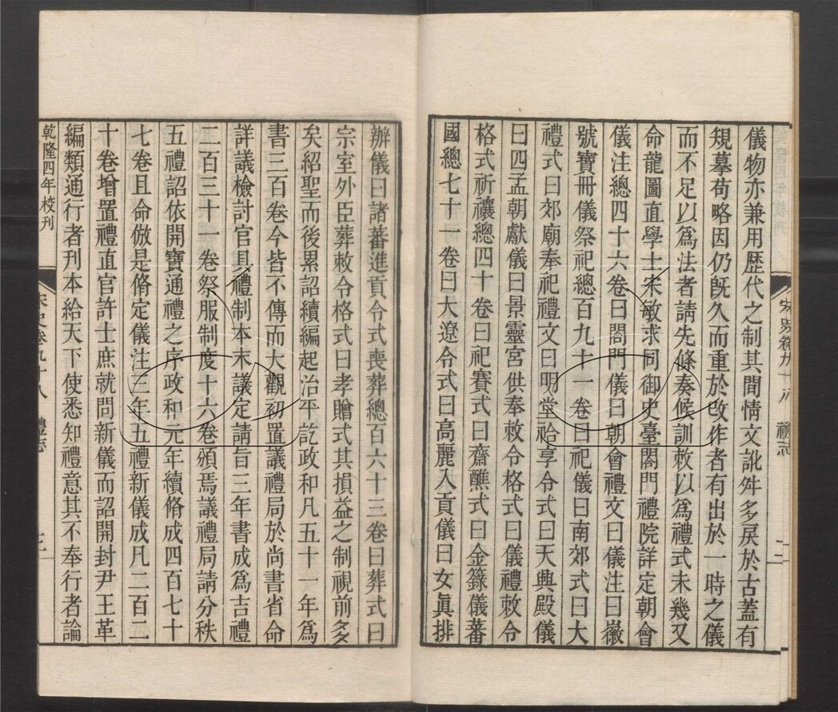 儀物亦兼用歴代之制其間情文訛舛多戾於古蓋有
規摹苟略因仍旣久而重於改作者有出於一時之儀
而不足以爲法者請先條奏候訓敕以爲禮式未幾又
命龍圖直學士宋敏求同御史臺閤門禮院詳定朝會
儀注總四十六卷曰閤門儀曰朝會禮文曰儀注曰徽
號寶冊儀祭祀總百九十一卷曰祀儀曰南郊式曰大
禮式曰郊廟奉祀禮文曰明堂祫享令式曰天興殿儀
曰四孟朝獻儀曰景靈宮供奉敕令格式曰儀禮敕令
格式祈禳總四十卷曰祀賽式曰齋醮式曰金籙儀蕃
國總七十一卷曰大遼令式曰高麗入貢儀曰女眞排
宋史卷九十八 禮志 二
辦儀曰諸蕃進貢令式喪葬總百六十三卷曰葬式曰
宗室外臣葬敕令格式曰孝贈式其損益之制視前多
矣紹聖而後累詔續編起治平訖政和凡五十一年爲
書三百卷今皆不傳而大觀初置議禮局於尚書省命
詳議檢討官具禮制本末議定請旨三年書成爲吉禮
二百三十一卷祭服制度十六卷頒焉議禮局請分秩
五禮詔依開寶通禮之序政和元年續脩成四百七十
七卷且命倣是脩定儀注三年五禮新儀成凡二百二
十卷增置禮直官許士庶就問新儀而詔開封尹王革
編類通行者刊本給天下使悉知禮意其不奉行者論
乾隆四年校刊 宋史卷九十八 禮志